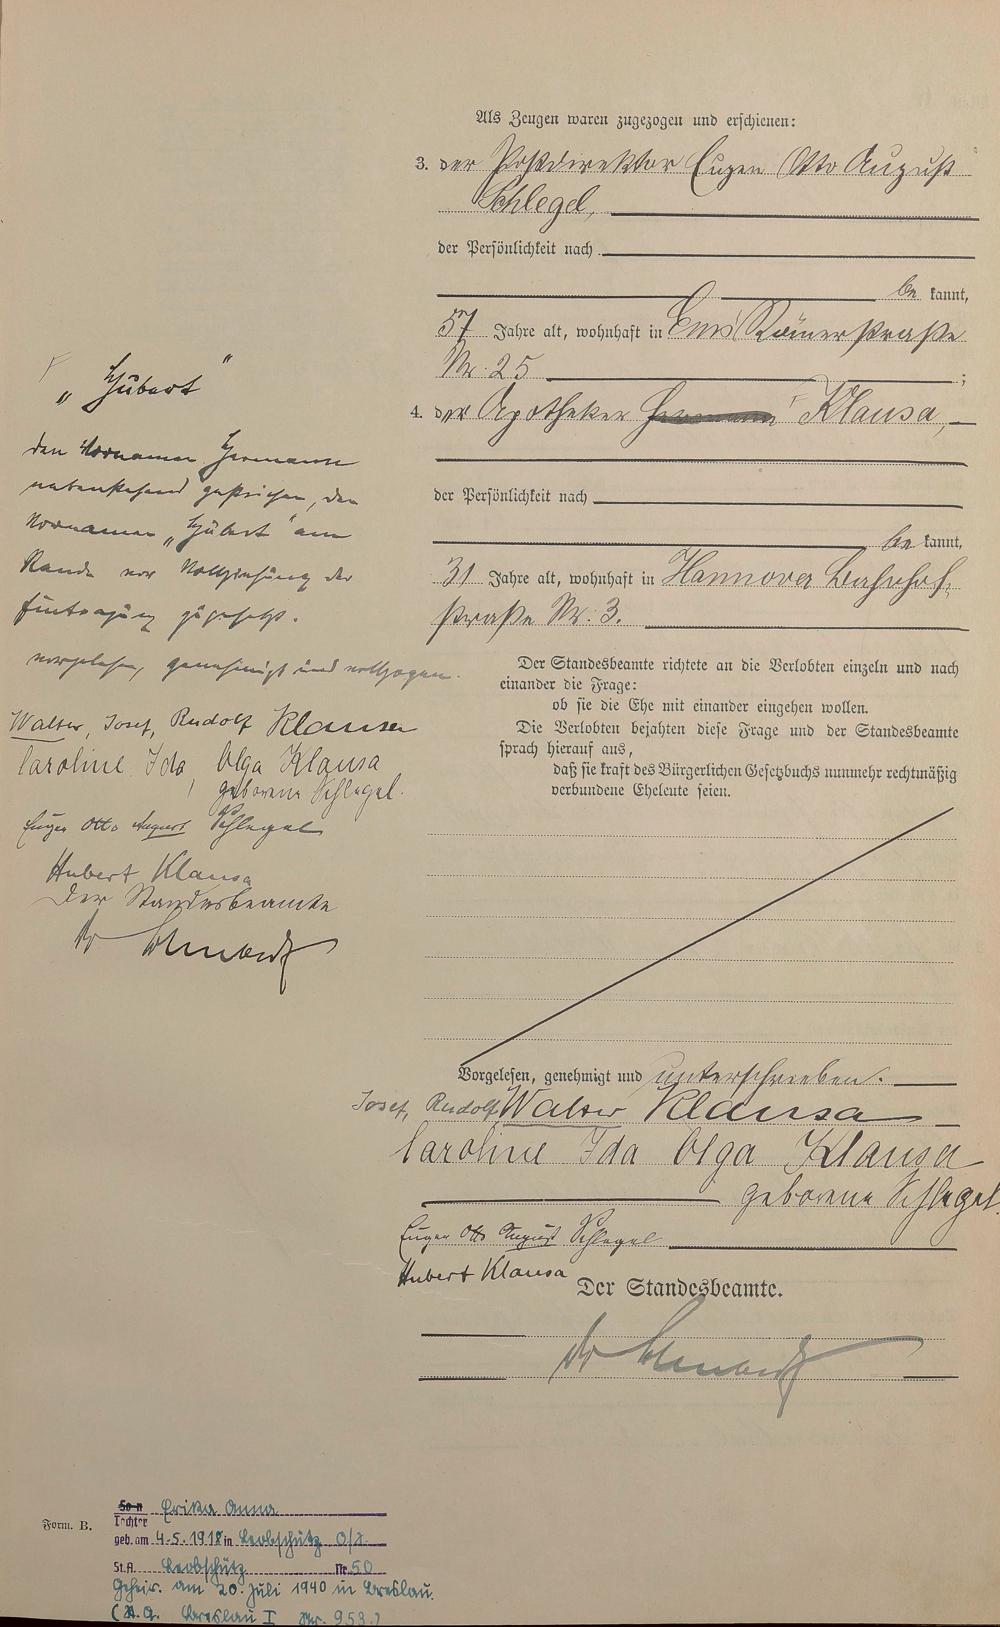 Als Zeugen waren zugezogen und erschienen:
3. der Postdirektor Eugen Otto August
Schlegel,
der Persönlichkeit nach
be kannt,
57 Jahre alt, wohnhaft in Ems Römerstraße
Nr. 25 ;
4. der Apotheker Hermann Klausa,
der Persönlichkeit nach
be kannt,
31 Jahre alt, wohnhaft in Hannover Bahnhof-
straße Nr. 3.
Der Standesbeamte richtete an die Verlobten einzeln und nach
einander die Frage:
ob sie die Ehe mit einander eingehen wollen.
Die Verlobten bejahten diese Frage und der Standesbeamte
sprach hierauf aus,
daß sie kraft des Bürgerlichen Gesetzbuchs nunmehr rechtmäßig
verbundene Eheleute seien.
Vorgelesen, genehmigt und unterschrieben.
Josef, Rudolf Walter Klausa
Caroline Ida Olga Klausa
geborene Schlegel.
Eugen Otto August Schlegel
Hubert Klausa
Der Standesbeamte.
Dr
„Hubert"
den Vornamen Hermann
nebenstehend gestrichen, den
Vornamen „Hubert" am
Rande vor Vollziehung der
Eintragung zugesetzt.
vorgelesen, genehmigt und vollzogen.
Walter, Josef, Rudolf Klausa
Caroline Ida Olga Klausa
geborene Schlegel.
Eugen Otto August Schlegel
Hubert Klausa
Der Standesbeamte
Dr
Form. B.
Sohn Erika Anna
Tochter
geb. am 4.5.1918 in Leobschütz O/S.
St.A. Leobschütz Nr. 50
Geheir. am 20. Juli 1940 in Breslau.
(St.A. Breslau I Nr. 953.)